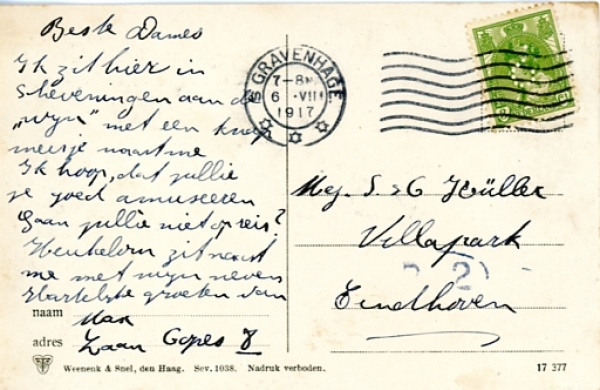 Beste Dames
Ik zit hier in
Scheveningen aan de
„wijn” met een knap
meisje naast me
Ik hoop, dat jullie
je goed amuseeren
Gaan jullie niet op reis?
Heukelom zit naast
me met mijn neven
Hartelijke groeten van
naam Max
adres
's GRAVENHAGE
7-8
6 VII
1917
Mej. S. & C
Villapark
Eindhoven
Weenenk & Snel, den Haag. Sev. 1038. Nadruk verboden.
17 377